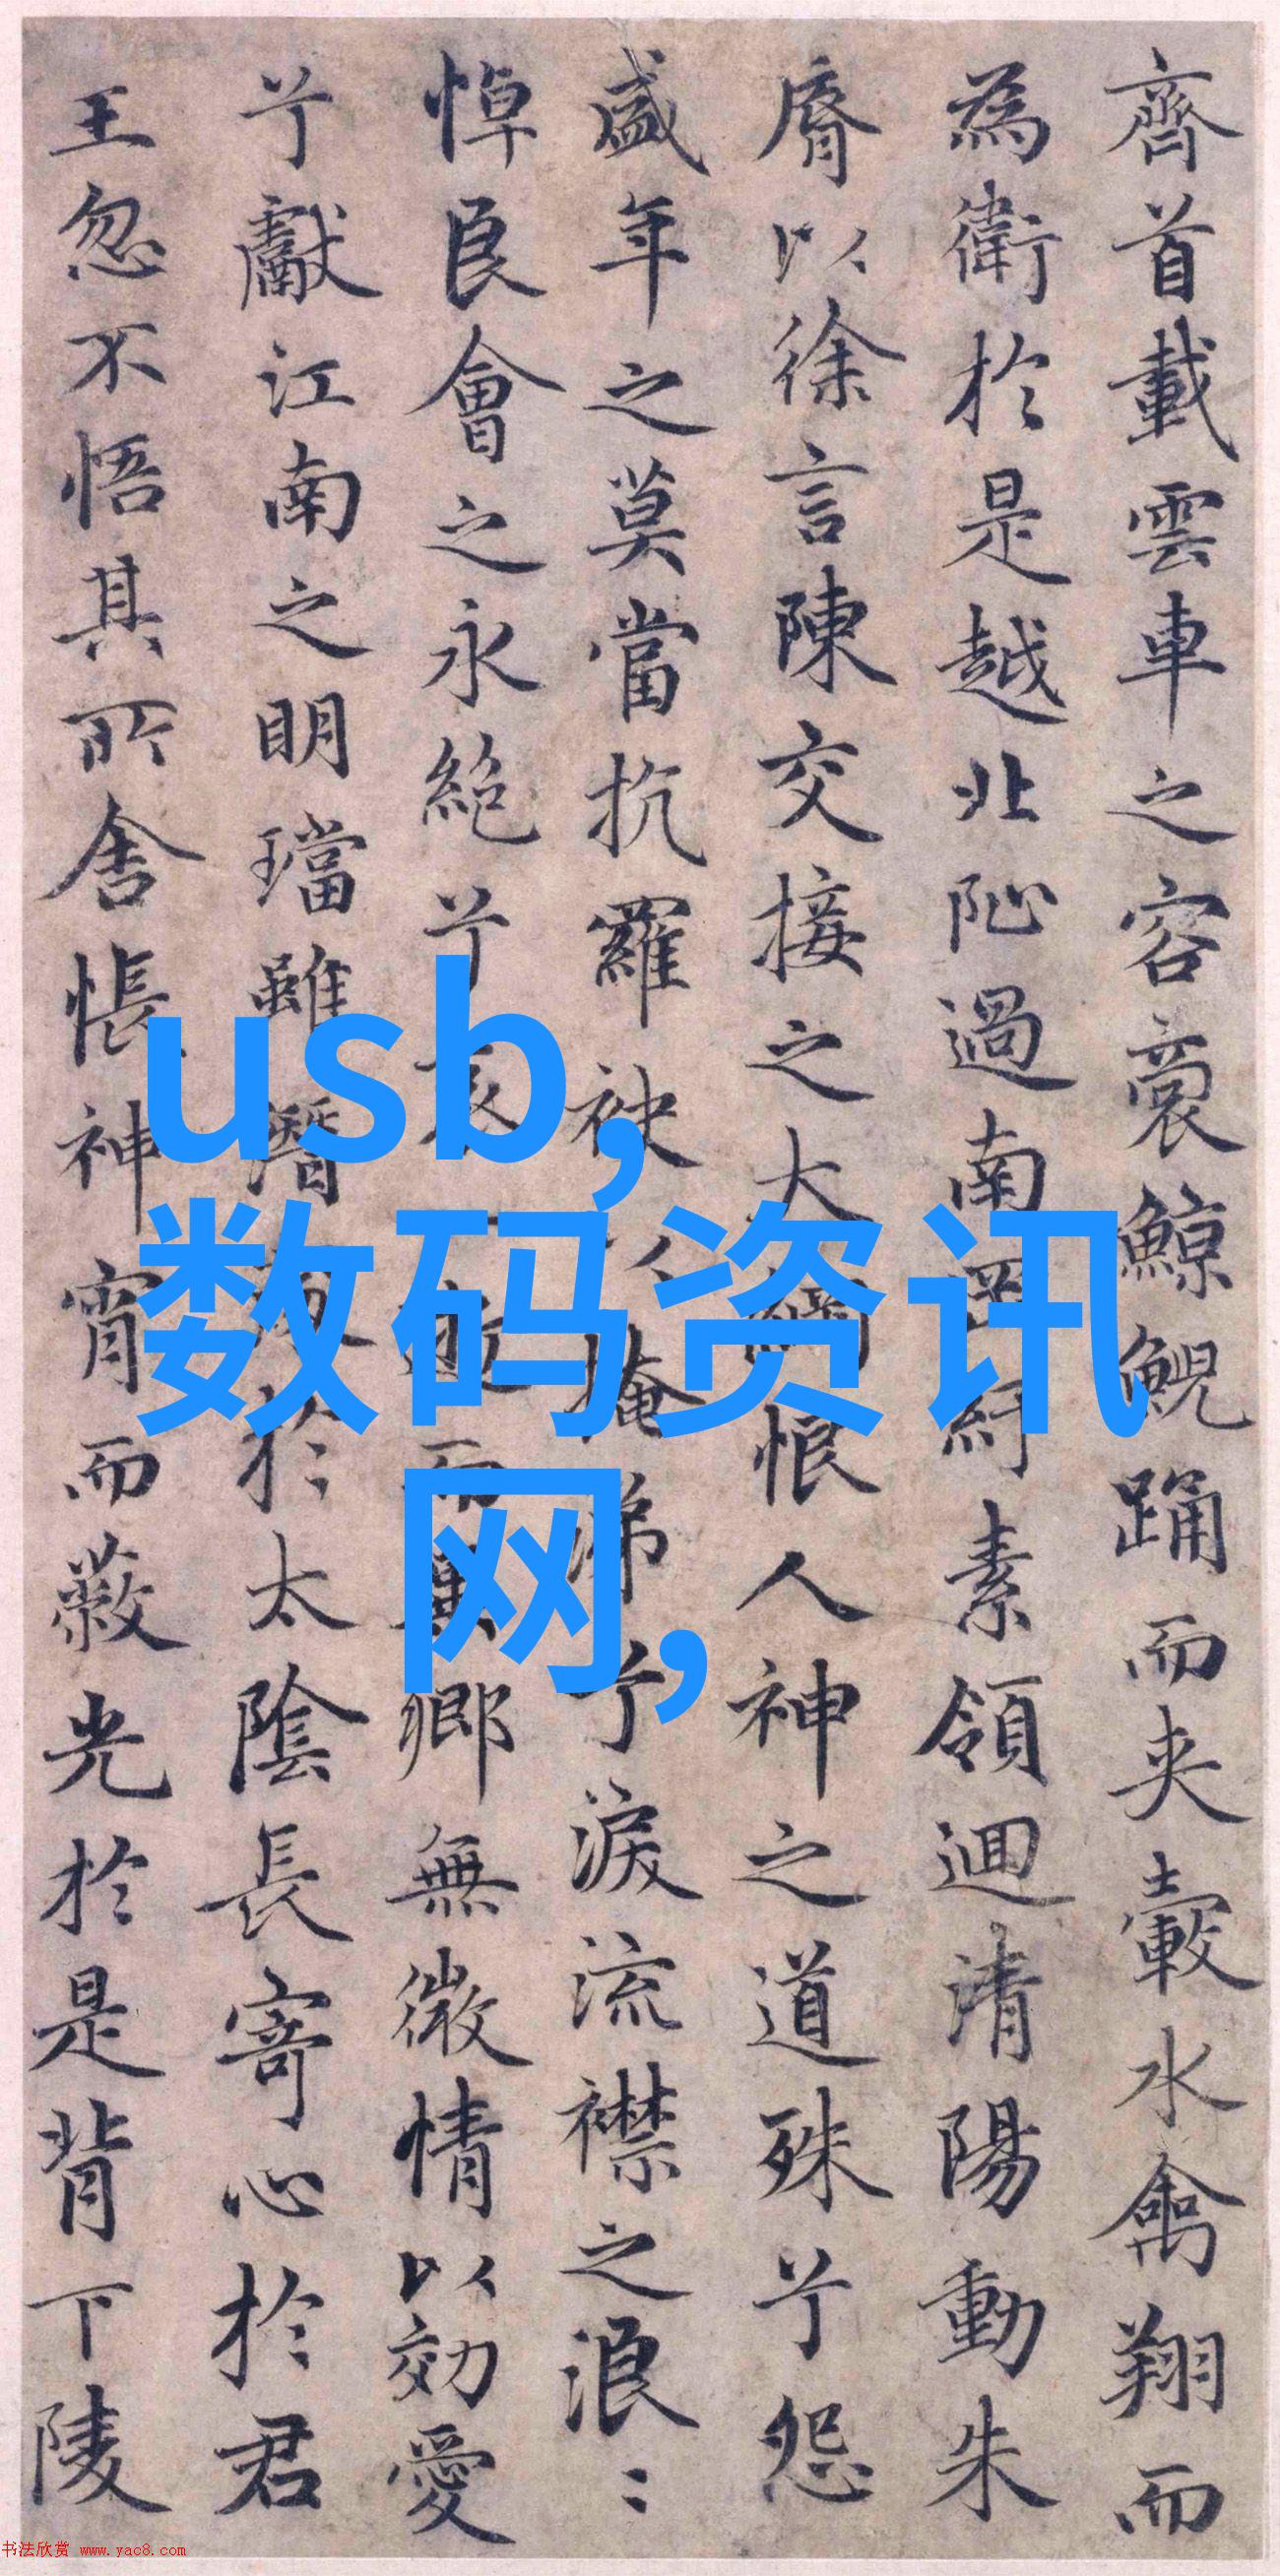 齊首載雲車之容裔鯨鯢踊而夾轂水禽翔而
為衛於是越北沚過南岡紆素領迴清陽動朱
脣以徐言陳交接之大綱恨人神之道殊兮怨
盛年之莫當抗羅袂以掩涕兮淚流襟之浪〻
悼良會之永絕兮哀一逝而異鄉無微情以効愛
兮獻江南之明璫雖潛處於太陰長寄心於君
王忽不悟其所舍悵神宵而蔽光於是背下陵
usb,
数码资讯
网,
书法欣赏 www.yac8.com